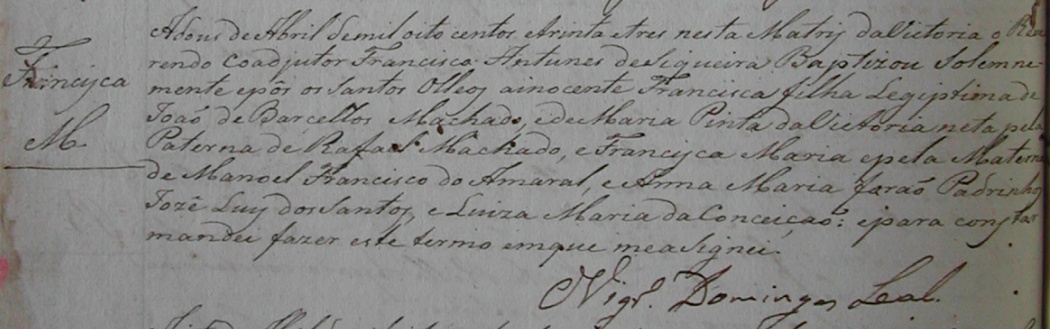 Francisca
M.
Adous de Abril demil oito centos etrinta etres nesta Matriz daVictoria o Reve
rendo Coadjutor Francisco Antunes deSiqueira Baptizou Solemne-
mente epôs os Santos Olleos ainocente Francisca filha Legiptima de
João de Barcellos Machado, ede Maria Pinta daVictoria neta pela
Paterna de Rafael Machado, e Francisca Maria epela Materna
de Manoel Francisco do Amaral, e Anna Maria forão Padrinhos
Jozê Luiz dos Santos, e Luiza Maria da Conceição: epara constar
mandei fazer este termo emque measignei.
Vigr.º Domingos Leal.